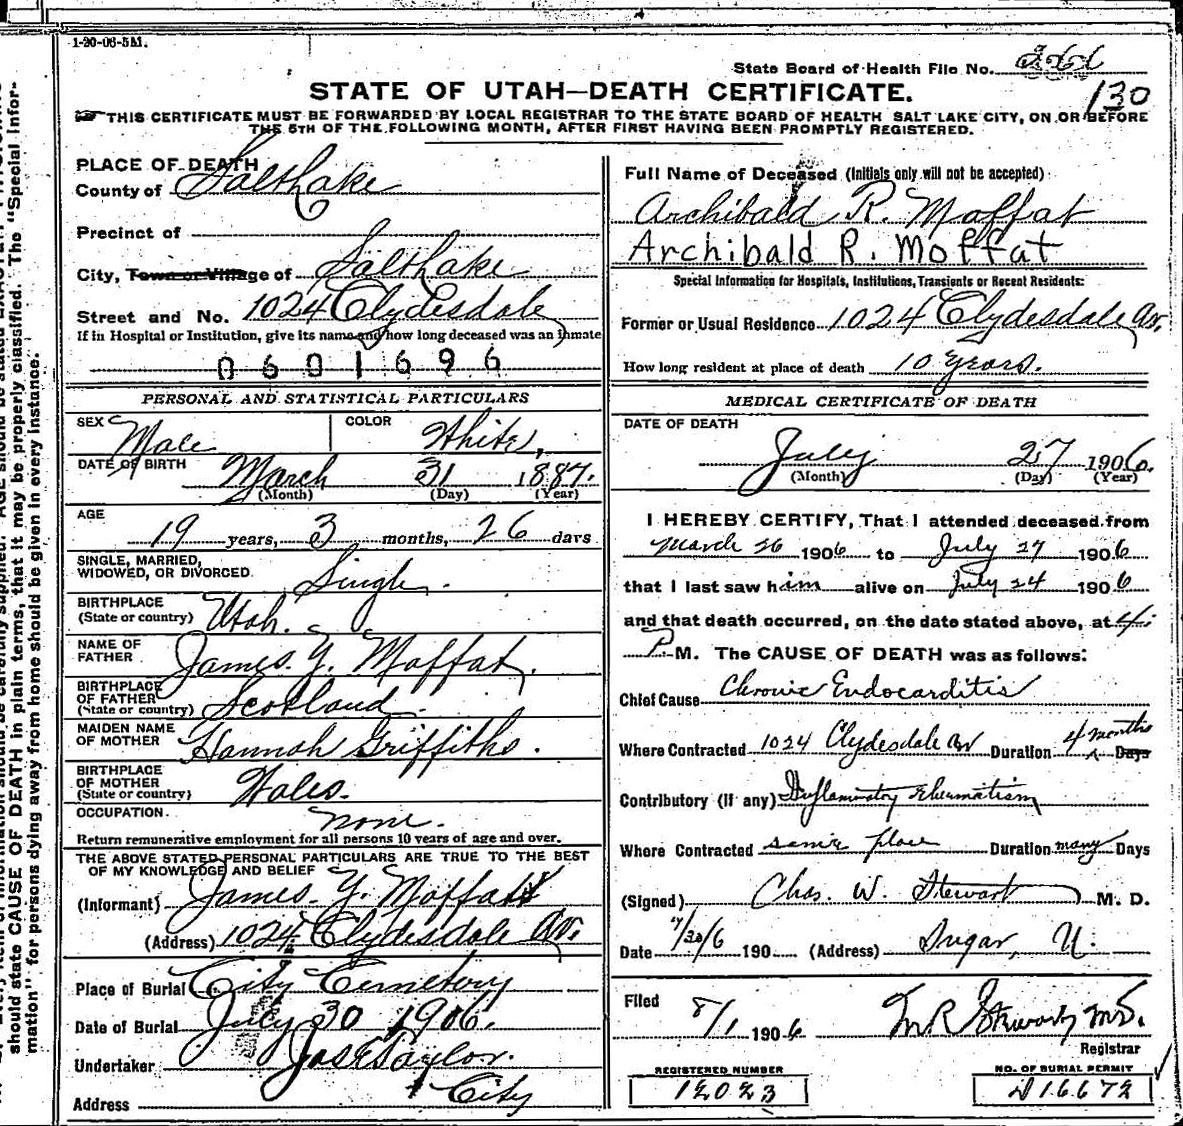 1-20-06-5M.
State Board of Health File No.
130
STATE OF UTAH—DEATH CERTIFICATE.
THIS CERTIFICATE MUST BE FORWARDED BY LOCAL REGISTRAR TO THE STATE BOARD OF HEALTH SALT LAKE CITY, ON OR BEFORE
THE 5TH OF THE FOLLOWING MONTH, AFTER FIRST HAVING BEEN PROMPTLY REGISTERED.
should state CAUSE OF DEATH in plain terms, that it may be properly classified. The "Special Infor-
mation" for persons dying away from home should be given in every instance.
PLACE OF DEATH
County of Salt Lake
Precinct of
City, Town or Village of Salt Lake
Street and No. 1024 Clydesdale
If in Hospital or Institution, give its name and how long deceased was an inmate
0601696
PERSONAL AND STATISTICAL PARTICULARS
SEX Male COLOR White,
DATE OF BIRTH March 31 1887.
(Month) (Day) (Year)
AGE
19 years, 3 months, 26 days
SINGLE, MARRIED,
WIDOWED, OR DIVORCED. Single.
BIRTHPLACE
(State or country) Utah.
NAME OF
FATHER James Y. Moffat.
BIRTHPLACE
OF FATHER
(State or country) Scotland.
MAIDEN NAME
OF MOTHER Hannah Griffiths.
BIRTHPLACE
OF MOTHER
(State or country) Wales.
OCCUPATION. none.
Return remunerative employment for all persons 10 years of age and over.
THE ABOVE STATED PERSONAL PARTICULARS ARE TRUE TO THE BEST
OF MY KNOWLEDGE AND BELIEF
(Informant) James Y. Moffat
(Address) 1024 Clydesdale Av.
Place of Burial City Cemetery
Date of Burial July 30 1906.
Undertaker Jos E Taylor.
Address City
Full Name of Deceased (Initials only will not be accepted)
Archibald R. Moffat
Archibald R. Moffat
Special Information for Hospitals, Institutions, Transients or Recent Residents:
Former or Usual Residence 1024 Clydesdale Av.
How long resident at place of death 10 Years.
MEDICAL CERTIFICATE OF DEATH
DATE OF DEATH
July 27 1906.
(Month) (Day) (Year)
I HEREBY CERTIFY, That I attended deceased from
March 26 1906 to July 27 1906
that I last saw him alive on July 24 1906
and that death occurred, on the date stated above, at 4:
P. M. The CAUSE OF DEATH was as follows:
Chief Cause Chronic Endocarditis
Where Contracted 1024 Clydesdale Av Duration 4 months Days
Contributory (if any) Inflammatory Rheumatism
Where Contracted same place Duration many Days
(Signed) Chas. W. Stewart M. D.
Date 7/30/6 190 (Address) Sugar, U.
Filed 8/1 1906 M.D.
Registrar
REGISTERED NUMBER
12023
NO. OF BURIAL PERMIT
16672